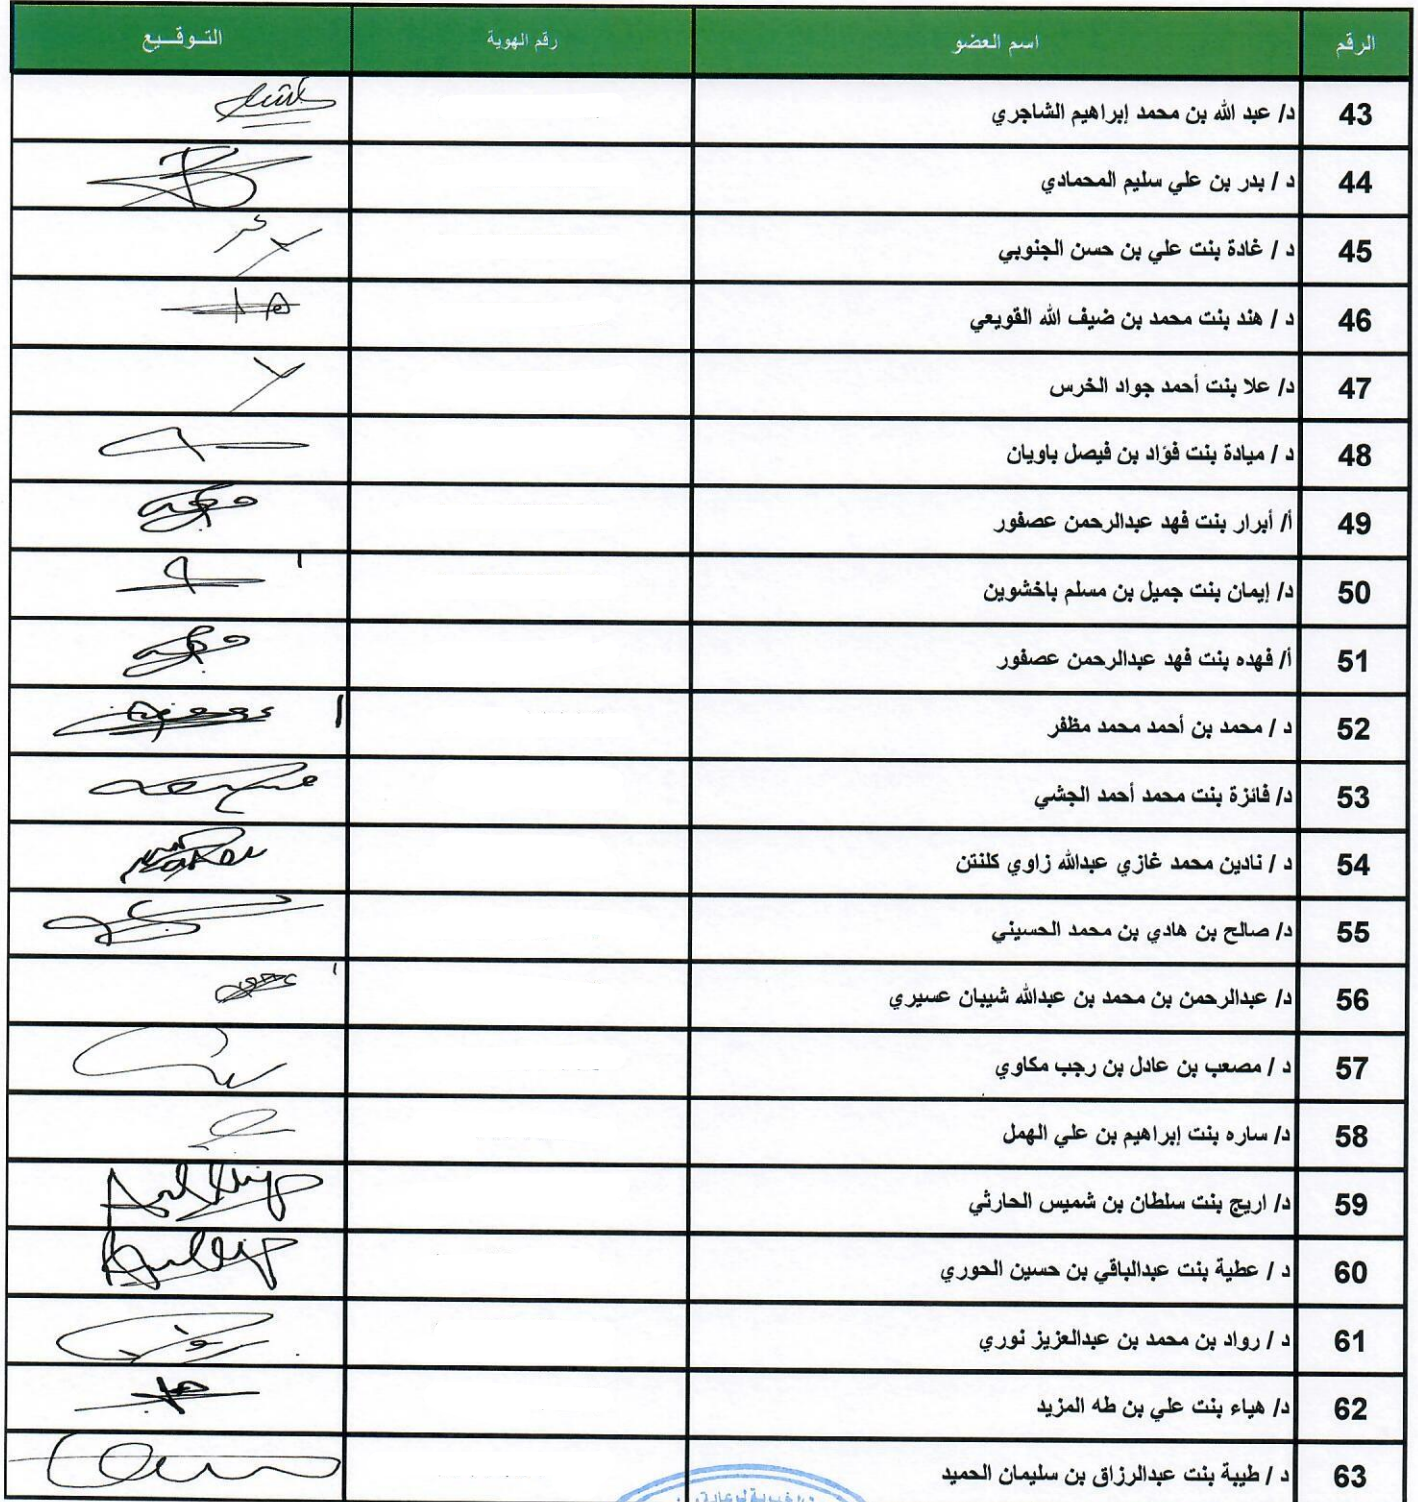 الرقم اسم العضو رقم الهوية التـوقـيع
43 د/ عبد الله بن محمد إبراهيم الشاجري
44 د / بدر بن علي سليم المحمادي
45 د / غادة بنت علي بن حسن الجنوبي
46 د / هند بنت محمد بن ضيف الله القويعي
47 د/ علا بنت أحمد جواد الخرس
48 د / ميادة بنت فؤاد بن فيصل باويان
49 أ/ أبرار بنت فهد عبدالرحمن عصفور
50 د/ إيمان بنت جميل بن مسلم باخشوين
51 أ/ فهده بنت فهد عبدالرحمن عصفور
52 د / محمد بن أحمد محمد مظفر
53 د/ فائزة بنت محمد أحمد الجشي
54 د / نادين محمد غازي عبدالله زاوي كلنتن
55 د/ صالح بن هادي بن محمد الحسيني
56 د/ عبدالرحمن بن محمد بن عبدالله شيبان عسيري
57 د / مصعب بن عادل بن رجب مكاوي
58 د/ ساره بنت إبراهيم بن علي الهمل
59 د/ اريج بنت سلطان بن شميس الحارثي
60 د / عطية بنت عبدالباقي بن حسين الحوري
61 د / رواد بن محمد بن عبدالعزيز نوري
62 د/ هياء بنت علي بن طه المزيد
63 د / طيبة بنت عبدالرزاق بن سليمان الحميد